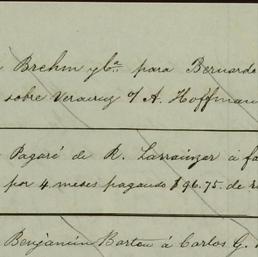 Brehm y Cª. para Bernardo
sobre Veracruz º/ A. Hoffman
Pagaré de R. Larrainzar á fa
por 4 meses pagando $96.75. de
Benjamin Barton á Carlos G.